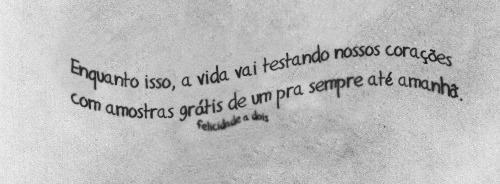 Enquanto isso, a vida vai testando nossos corações
com amostras grátis de um pra sempre até amanhã.
felicidade a dois